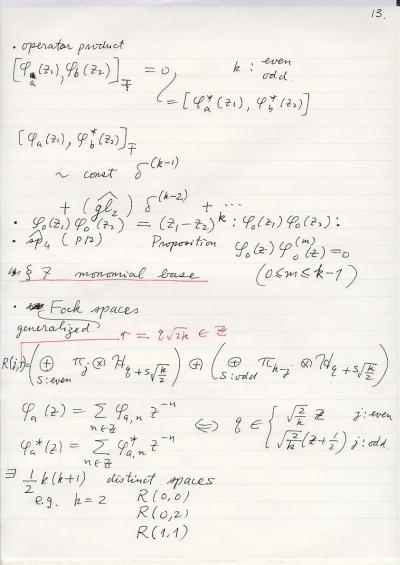 13.
· operator product
[φ_a(z₁), φ_b(z₂)]_∓ = 0   k : even odd.
= [φ*_a(z₁), φ*_b(z₂)]
[φ_a(z₁), φ*_b(z₂)]_∓
~ const δ^(k-1)
+ (ĝl₂) δ^(k-2) + ...
· φ₀(z₁) φ₀(z₂) = (z₁-z₂)^k : φ₀(z₁) φ₀(z₂) :
· ŝp₄ (p12)   Proposition   φ₀(z) φ₀^(m)(z) = 0
§ 7 monomial base   (0≤m≤k-1)
· Fock spaces
generalized   r = q√2k ∈ Z
R(j,r) = (⊕_{s:even} π_j ⊗ H_{q+s√(k/2)}) ⊕ (⊕_{s:odd} π_{k-j} ⊗ H_{q+s√(k/2)})
φ_a(z) = Σ_{n∈Z} φ_{a,n} z^{-n}   ⇔   q ∈ { √(2/k) Z   j:even
φ*_a(z) = Σ_{n∈Z} φ*_{a,n} z^{-n}   √(2/k) (Z+1/2)   j:odd.
∃ ½ k(k+1) distinct spaces
e.g. k=2   R(0,0)
R(0,2)
R(1,1)